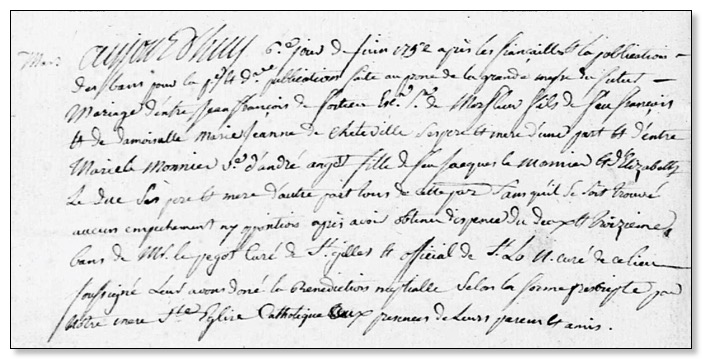 aujourd'huy 6.e jour de Juin 1752 après les fiançailles la publication
des bans pour la p.re & d.re publication faite au prone de la grande messe du futur
Mariage d'entre Jean françois de Sortieu Esc.r S.r de Monfleur fils de feu françois
& de damoiselle Marie Jeanne de Cheteville Ses pere & mere d'une part & d'entre
Marie le Monnier V.e d'andré angot fille de feu Jacques le Monnier & d'Elizabeth
Le duc Ses pere & mere d'autre part tous de cette par. Sans qu'il se soit trouvé
aucun empechement ny opposition après avoir obtenu dispence du deux & troizieme
bans de Mr. le pegot Curé de St. gilles & official de St. Lo N. curé de ce lieu
soussigné Leur avons doné la Benediction nuptialle Selon la forme prescripte par
Notre mere Ste Eglise Catholique aux presences de Leurs parens & amis.